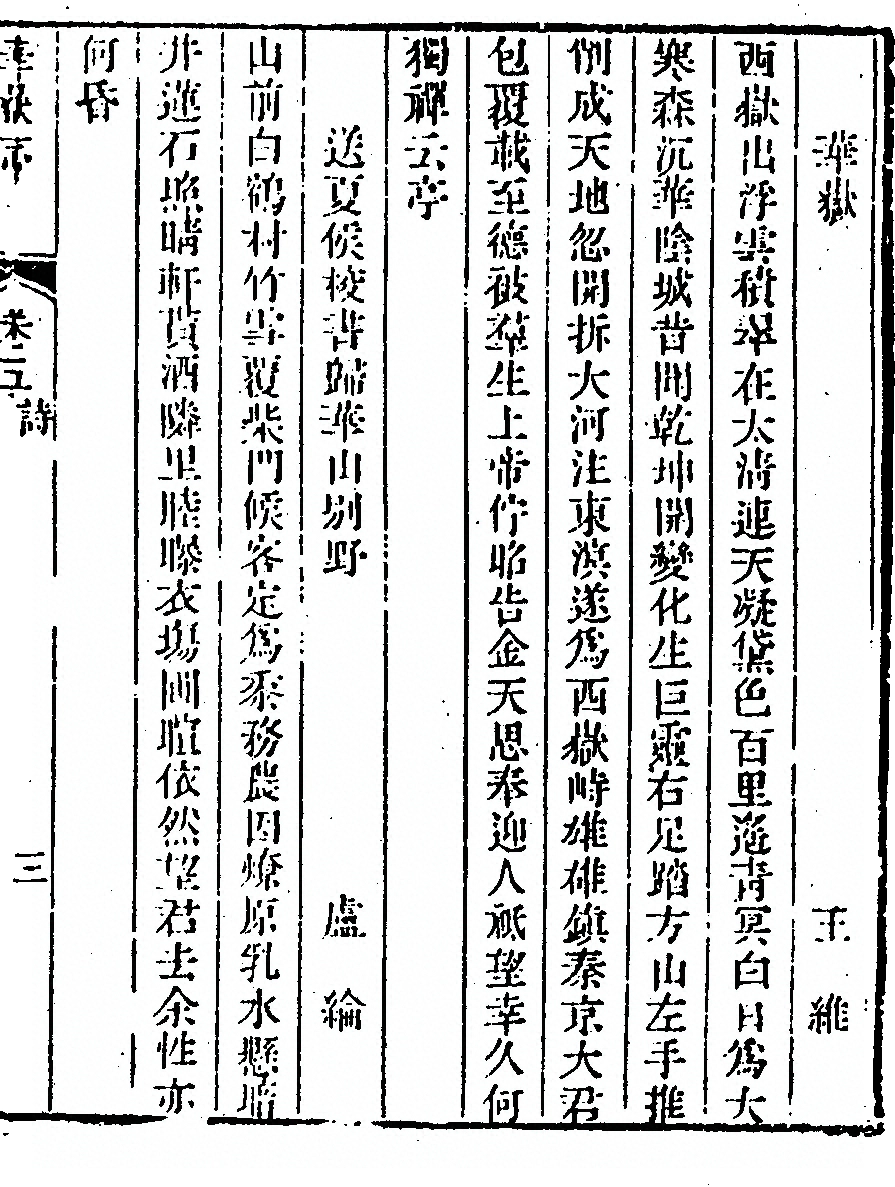 華嶽 王維
西嶽出浮雲積翠在太清連天凝黛色百里遙青冥白日爲大
寒森沉華陰城昔聞乾坤開變化生巨靈右足踏方山左手推
削成天地忽開拆大河注東溟遂爲西嶽峙雄雄鎮秦京大君
包覆載至德被羣生上帝佇昭告金天思奉迎人祗望幸久何
獨禪云亭
送夏侯校書歸華山別野 盧綸
山前白鶴村竹雪覆柴門候客定爲黍務農因燎原乳水懸
井蓮石照晴軒貰酒隣里睦曝衣塲圃暄依然望君去余性亦
何昏
卷五
詩
三